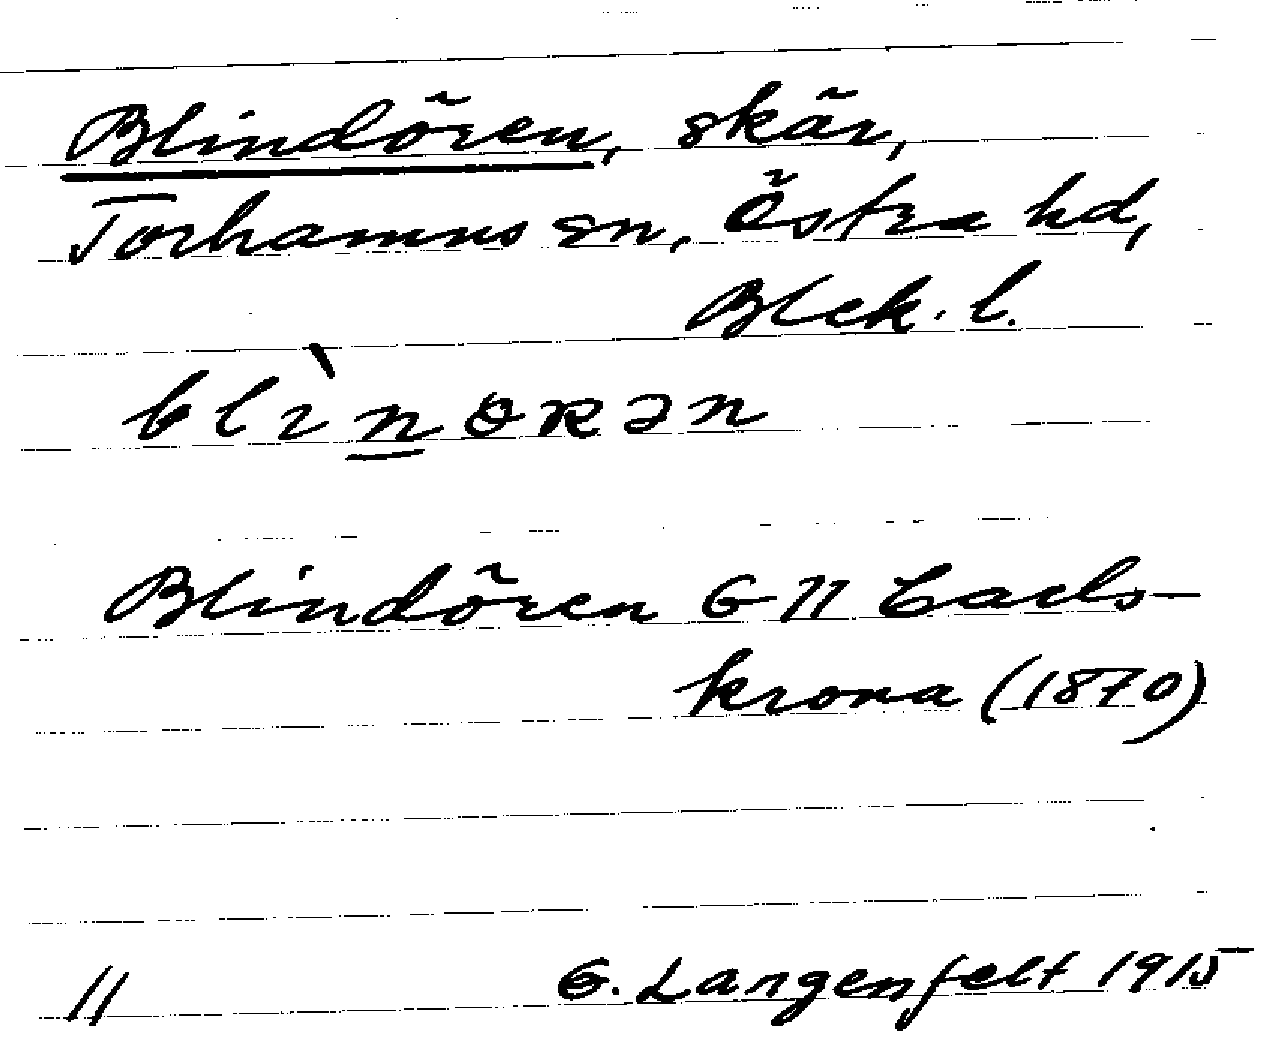 Blindören, skär,
Torhamns sn, Östra hd,
Blek. l.
blìnɵʀən
Blindören G 11 Carls-
krona (1870)
// G. Langenfelt 1915